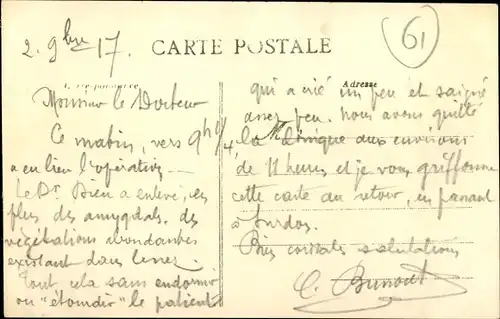 2. 9bre 17.
CARTE POSTALE
61
Correspondance
Adresse
Monsieur le Docteur
Ce matin, vers 9h 1/4
a eu lieu l'opération —
Le Dr. Bieu a enlevé, en
plus des amygdales, des
végétations abondantes
existant dans le nez.
Tout cela sans endormir
ou "étourdir" le patient
qui a crié un peu et saigné
assez peu. Nous avons quitté
la clinique aux environs
de 11 heures et je vous griffonne
cette carte au retour, en passant
à
Bien cordiales salutations